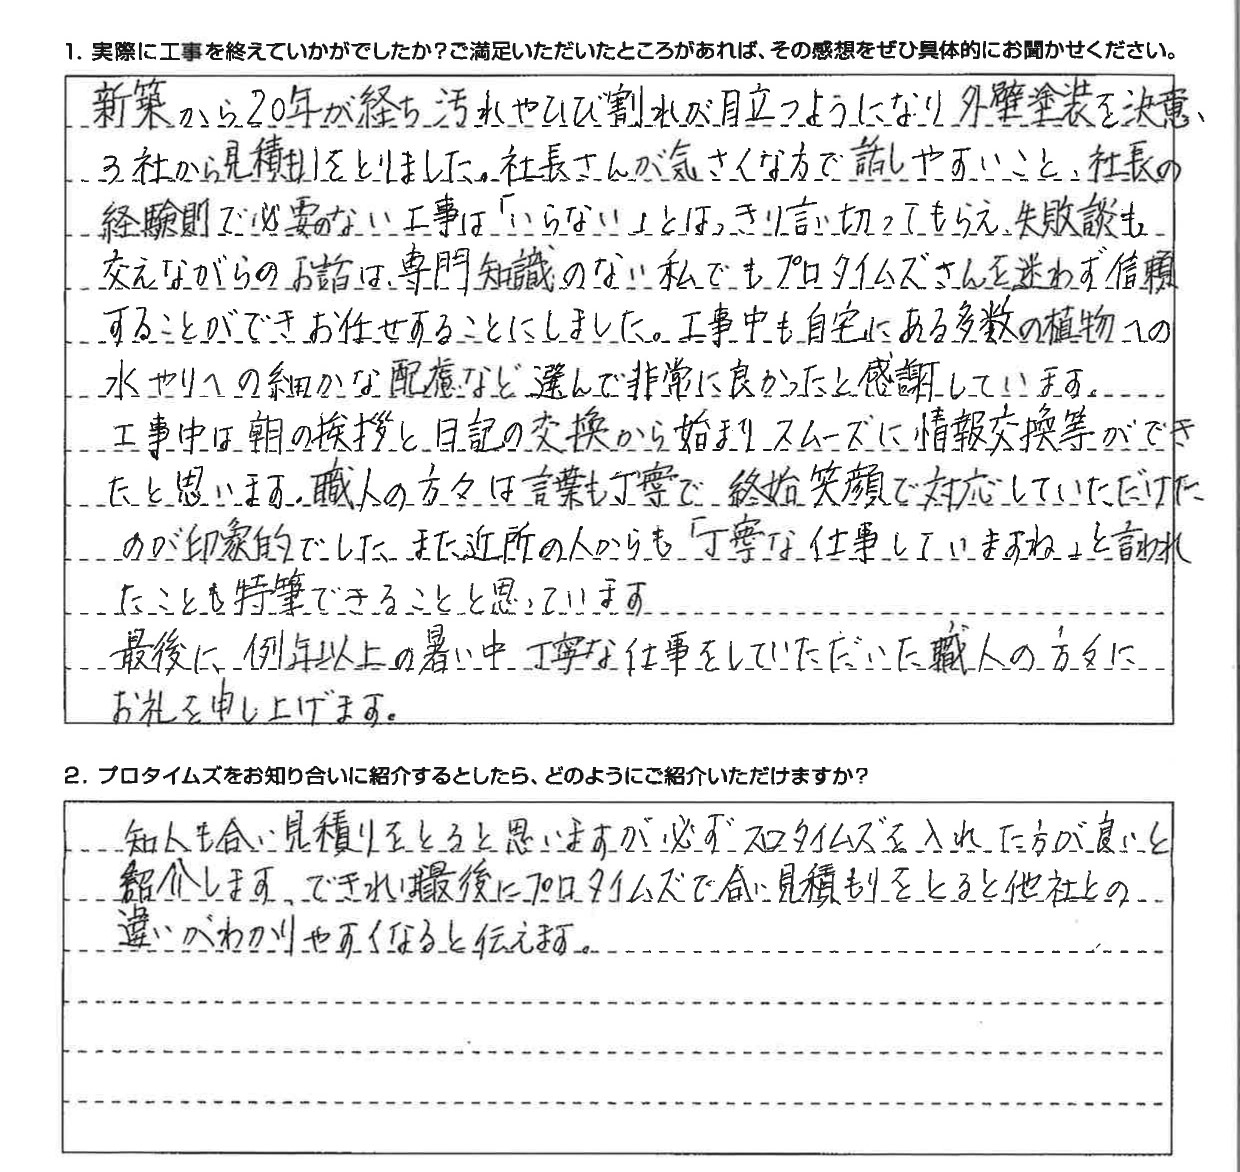 1. 実際に工事を終えていかがでしたか?ご満足いただいたところがあれば、その感想をぜひ具体的にお聞かせください。
新築から20年が経ち汚れやひび割れが目立つようになり外壁塗装を決意、
3社から見積りをとりました。社長さんが気さくな方で話しやすいこと、社長の
経験則で必要のない工事は「いらない」とはっきり言い切ってもらえ、失敗談も
交えながらのお話は、専門知識のない私でもプロタイムズさんを迷わず信頼
することができお任せすることにしました。工事中も自宅にある多数の植物への
水やりへの細かな配慮など選んで非常に良かったと感謝しています。
工事中は朝の挨拶と日記の交換から始まりスムーズに情報交換等ができ
たと思います。職人の方々は言葉も丁寧で終始笑顔で対応していただけた
のが印象的でした、また近所の人からも「丁寧な仕事していますね」と言われ
たことも特筆できることと思っています
最後に、例年以上の暑い中丁寧な仕事をしていただいた職人の方々に
お礼を申し上げます。
2. プロタイムズをお知り合いに紹介するとしたら、どのようにご紹介いただけますか?
知人も合い見積りをとると思いますが必ずプロタイムズを入れた方が良いと
紹介します、できれば最後にプロタイムズで合い見積もりをとると他社との
違いがわかりやすくなると伝えます。